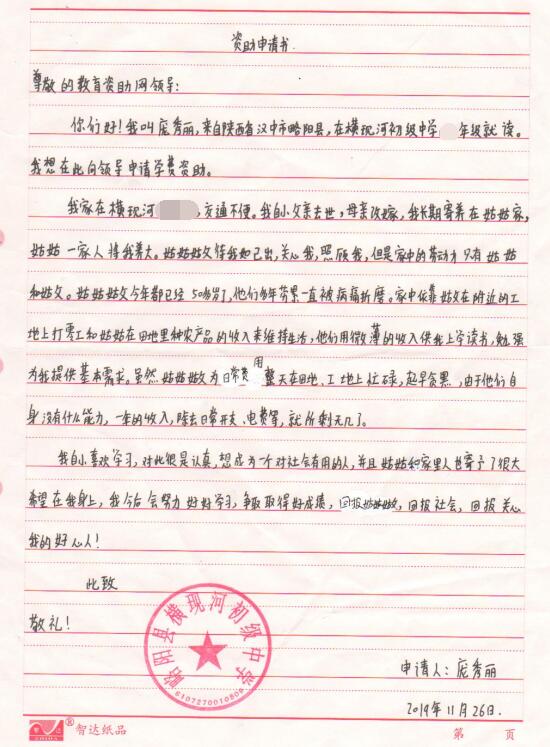 资助申请书.
尊敬的教育资助网领导:
你们好!我叫庞秀丽,来自陕西省汉中市略阳县,在横现河初级中学 年级就读。
我想在此向领导申请学费资助。
我家在横现河 ,交通不便。我自小父亲去世,母亲改嫁,我长期寄养在姑姑家,
姑姑一家人将我养大。姑姑姑父待我如己出,关心我,照顾我,但是家中的劳动力只有姑姑
和姑父。姑姑姑父今年都已经50多岁了,他们多年劳累一直被病痛折磨。家中依靠姑父在附近的工
地上打零工和姑姑在田地里种农产品的收入来维持生活,他们用微薄的收入供我上学读书,勉强
为我提供基本需求。虽然姑姑姑父为日常费用整天在田地、工地上忙碌,起早贪黑,由于他们自
身没有什么能力,一年的收入,除去日常开支、电费等,就所剩无几了。
我自小喜欢学习,对此很是认真,想成为一个对社会有用的人,并且姑姑和家里人也寄予了很大
希望在我身上,我今后会努力好好学习,争取取得好成绩,回报姑姑姑父,回报社会,回报关心
我的好心人!
此致
敬礼!
略阳县横现河初级中学
6107270010809
申请人:庞秀丽
2019年11月26日.
®智达纸品
第 页